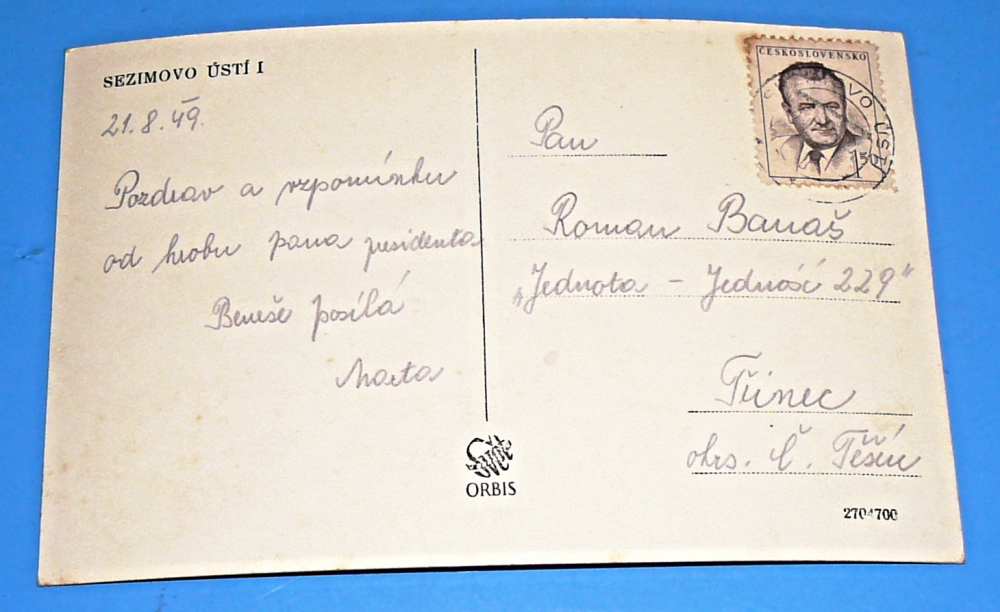 SEZIMOVO ÚSTÍ I
21.8.49.
Pozdrav a vzpomínku
od hrobu pana presidenta
Beneše posílá
Marta
ČESKOSLOVENSKO
Pan
Roman Banaš
„Jednota – Jedność 229"
Třinec
okrs. Č. Těšín
Svět
ORBIS
2704700